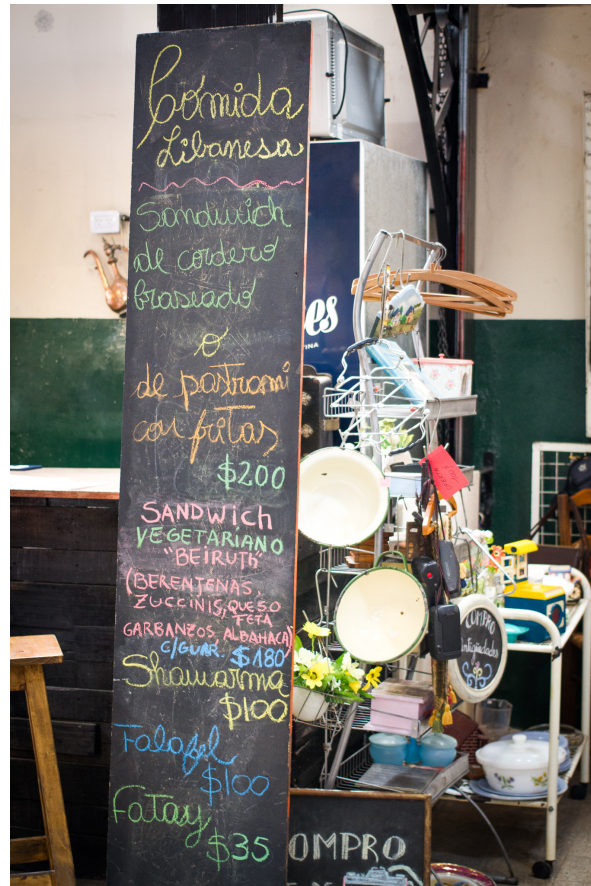 Comida
Libanesa
Sandwich
de cordero
braseado
o
de pastrami
con fritas
$200
SANDWICH
VEGETARIANO
"BEIRUTH"
(BERENTENAS,
ZUCCINIS, QUESO
FETA
GARBANZOS, ALBAHACA)
C/GUAR. $180
Shawarma
$100
Falafel
$100
Fatay
$35
es
INA
COMPRO
Antigüedades
OMPRO